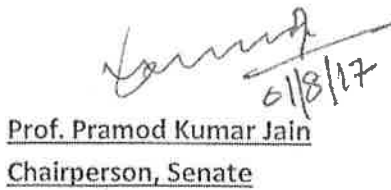 01/8/17
Prof. Pramod Kumar Jain
Chairperson, Senate